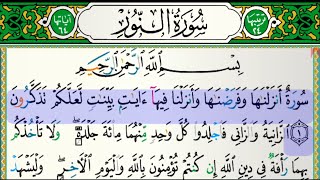 ترتيبها ٢٤
سُورَةُ النُّورِ
آياتها ٦٤
بِسْمِ ٱللَّهِ ٱلرَّحْمَٰنِ ٱلرَّحِيمِ
سُورَةٌ أَنزَلْنَٰهَا وَفَرَضْنَٰهَا وَأَنزَلْنَا فِيهَآ ءَايَٰتٍۭ بَيِّنَٰتٍ لَّعَلَّكُمْ تَذَكَّرُونَ
١ ٱلزَّانِيَةُ وَٱلزَّانِى فَٱجْلِدُوا۟ كُلَّ وَٰحِدٍ مِّنْهُمَا مِا۟ئَةَ جَلْدَةٍ ۖ وَلَا تَأْخُذْكُم
بِهِمَا رَأْفَةٌ فِى دِينِ ٱللَّهِ إِن كُنتُمْ تُؤْمِنُونَ بِٱللَّهِ وَٱلْيَوْمِ ٱلْءَاخِرِ ۖ وَلْيَشْهَدْ